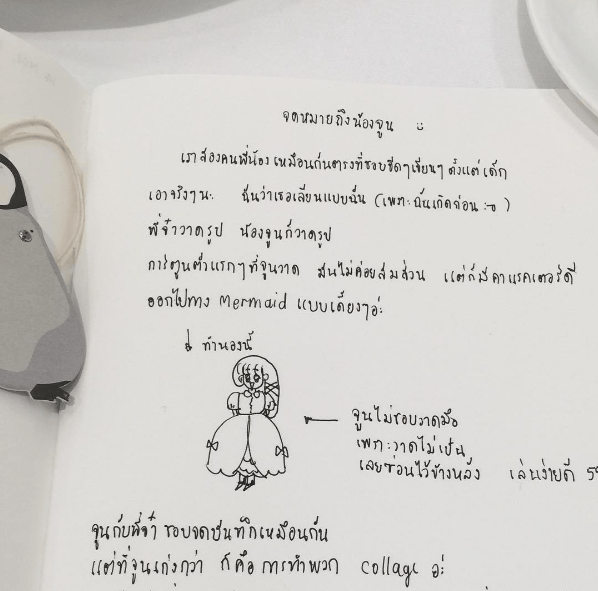 จดหมายถึงน้องจูน
เราสองคนพี่น้อง เหมือนกันตรงที่ชอบขีดๆเขียนๆ ตั้งแต่เด็ก
เอาจริงๆนะ ฉันว่าเธอเลียนแบบฉัน (เพราะฉันเกิดก่อน :-o )
พี่จ๋าวาดรูป น้องจูนก็วาดรูป
การ์ตูนตัวแรกๆที่จูนวาด มันไม่ค่อยสมส่วน แต่ก็มีคาแรคเตอร์ดี
ออกไปทาง Mermaid แบบเดี้ยงๆอ่ะ
↓ ทำนองนี้
← จูนไม่ชอบวาดมือ
เพราะวาดไม่เป็น
เลยซ่อนไว้ข้างหลัง เล่นง่ายดี 55
จูนกับพี่จ๋า ชอบจดบันทึกเหมือนกัน
แต่ที่จูนเก่งกว่า ก็คือ การทำพวก collage อ่ะ